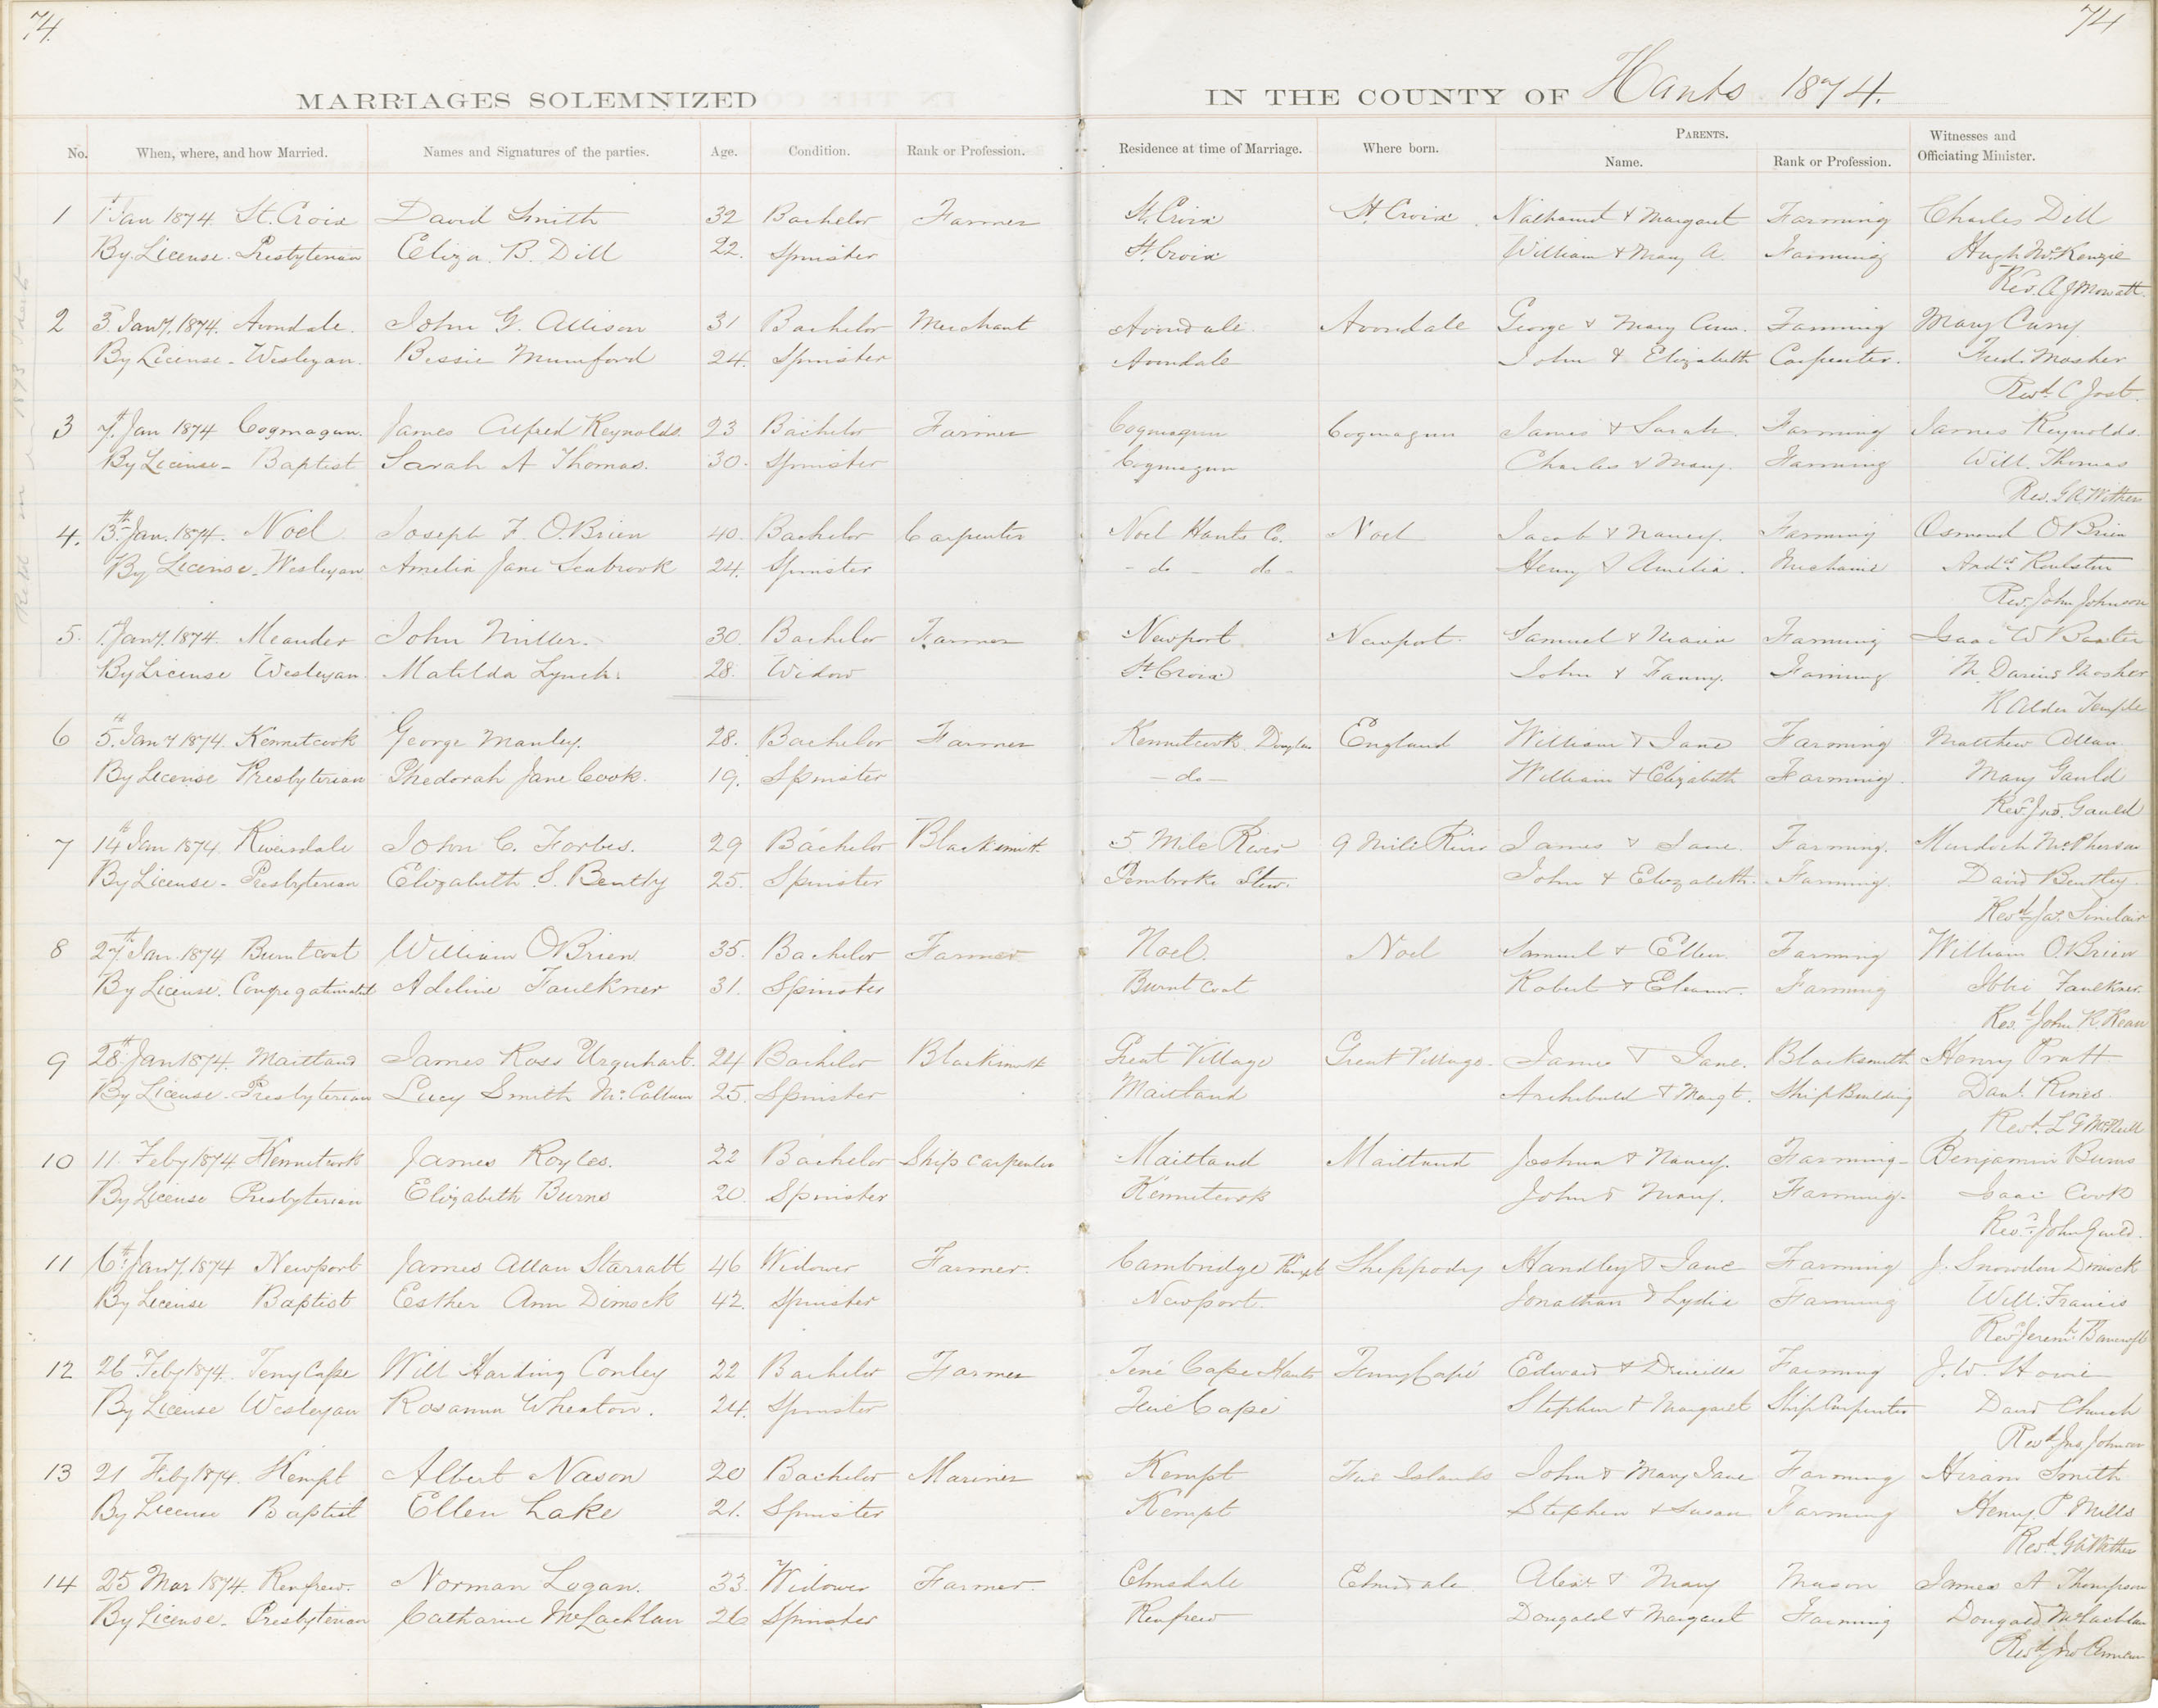 74.
74
MARRIAGES SOLEMNIZED
IN THE COUNTY OF Hants 1874.
No. When, where, and how Married. Names and Signatures of the parties. Age. Condition. Rank or Profession. Residence at time of Marriage. Where born. PARENTS. Name. Rank or Profession. Witnesses and Officiating Minister.
1 1st Jan 1874. St. Croix David Smith 32 Bachelor Farmer St. Croix St Croix Nathaniel & Margaret Farming Charles Dill
By License. Presbyterian Eliza. B. Dill 22. Spinister St Croix William & Mary A. Farming Hugh McKenzie
Rev. A J Mowatt.
2 3. Jany. 1874. Avondale. John G. Allison 31 Bachelor Merchant Avondale. Avondale George & Mary Ann. Farming Mary Curry
By License - Wesleyan. Bessie Mumford 24. Spinister Avondale John & Elizabeth Carpenter. Fred. Mosher
Revd. C Jost.
3 7. Jan 1874 Cogmagun. James Alfred Reynolds. 23 Bachelor Farmer Cogmagun Cogmagun James & Sarah. Farming James Reynolds.
By License - Baptist Sarah A Thomas. 30. Spinister Cogmagun Charles & Mary. Farming Will. Thomas
Rev. G A Withers
4. 13th Jan. 1874. Noel Joseph F. O'Brien 40. Bachelor Carpenter Noel Hants Co. Noel Jacob & Nancy. Farming Osmond O'Brien
By License - Wesleyan Amelia Jane Seabrook 24. Spinister - do - do - Henry & Amelia. Mechanic Andw. Roulston
Rev. John Johnson
5. 1. Jany. 1874. Meander John Miller. 30. Bachelor Farmer Newport. Newport. Samuel & Maria Farming Isaac W Baxter
By License Wesleyan. Matilda Lynch. 28. Widow St Croix John & Fanny. Farming M. Darius Mosher
R Alder Temple
6 5. Jany 1874. Kennetcook George Manley. 28. Bachelor Farmer Kennetcook. Douglas England William & Jane Farming Matthew Allan
By License Presbyterian Phedorah Jane Cook. 19. Spinister - do - William & Elizabeth Farming. Mary Gauld
Revd. Jno. Gauld
7 14th Jan 1874. Riversdale John C. Forbes. 29 Bachelor Blacksmith. 5 Mile River 9 Mile River James & Jane. Farming. Murdoch McPherson
By License - Presbyterian Elizabeth. S. Bently 25. Spinister Pembroke Stew. John & Elizabeth. Farming. David Bentley.
Revd. Jas. Sinclair
8 27th Jan. 1874 Burntcoat William O'Brien 35. Bachelor Farmer Noel. Noel Samuel & Ellen. Farming William O'Brien
By License. Congregationalist Adeline Faulkner 31. Spinister Burnt Coat Robert & Eleanor. Farming Faulkner.
Revd. John R. Kean
9 28th Jan 1874. Maitland James Ross Urquhart. 24 Bachelor Blacksmith Great Village Great Village. James & Jane. Blacksmith Henry Pratt
By License - Presbyterian Lucy Smith McCallum 25. Spinister Maitland Archibald & Margt. Ship Building Danl. Rines
Revd. L G McNeill
10 11. Feby 1874 Kennetcook James Royles. 22 Bachelor Ship Carpenter Maitland Maitland Joshua & Nancy. Farming - Benjamin Burns
By License Presbyterian Elizabeth Burns 20. Spinister Kennetcook John & Mary. Farming - Isaac Cook
Revd. John Gauld.
11 6th Jany. 1874 Newport James Allan Starratt 46 Widower Farmer. Cambridge Kempt Sheppody Handley & Jane Farming J. Snowdon Dimock
By License Baptist Esther Ann Dimock 42. Spinister Newport. Jonathan & Lydia Farming Will. Francis
Revd Jeremh. Bancroft
12 26 Feby 1874. Teny Cape Will Harding Conley 22 Bachelor Farmer Tené Cape Hants Tenny Capé Edward & Drucilla Farming J. W. Howie
By License Wesleyan Rosanna Wheaton. 24. Spinster Tené Capé Stephen & Margaret Ship Carpenter David Church
Revd. Jno. Johnson
13 21 Feby 1874. Kempt Albert Nason 20 Bachelor Mariner Kempt Five Islands John & Mary Jane Farming Hiram Smith
By License Baptist Ellen Lake 21. Spinister Kempt Stephen & Susan Farming Henry P Mills
Revd. G A Withers
14 25 Mar 1874. Renfrew. Norman Logan. 33. Widower Farmer. Elmsdale Elmsdale Alexr & Mary Mason James A Thompson
By License - Presbyterian Catharine McLachlan 26 Spinister Renfrew Dougald & Margaret Farming Dougald McLachlan
Revd. Jno